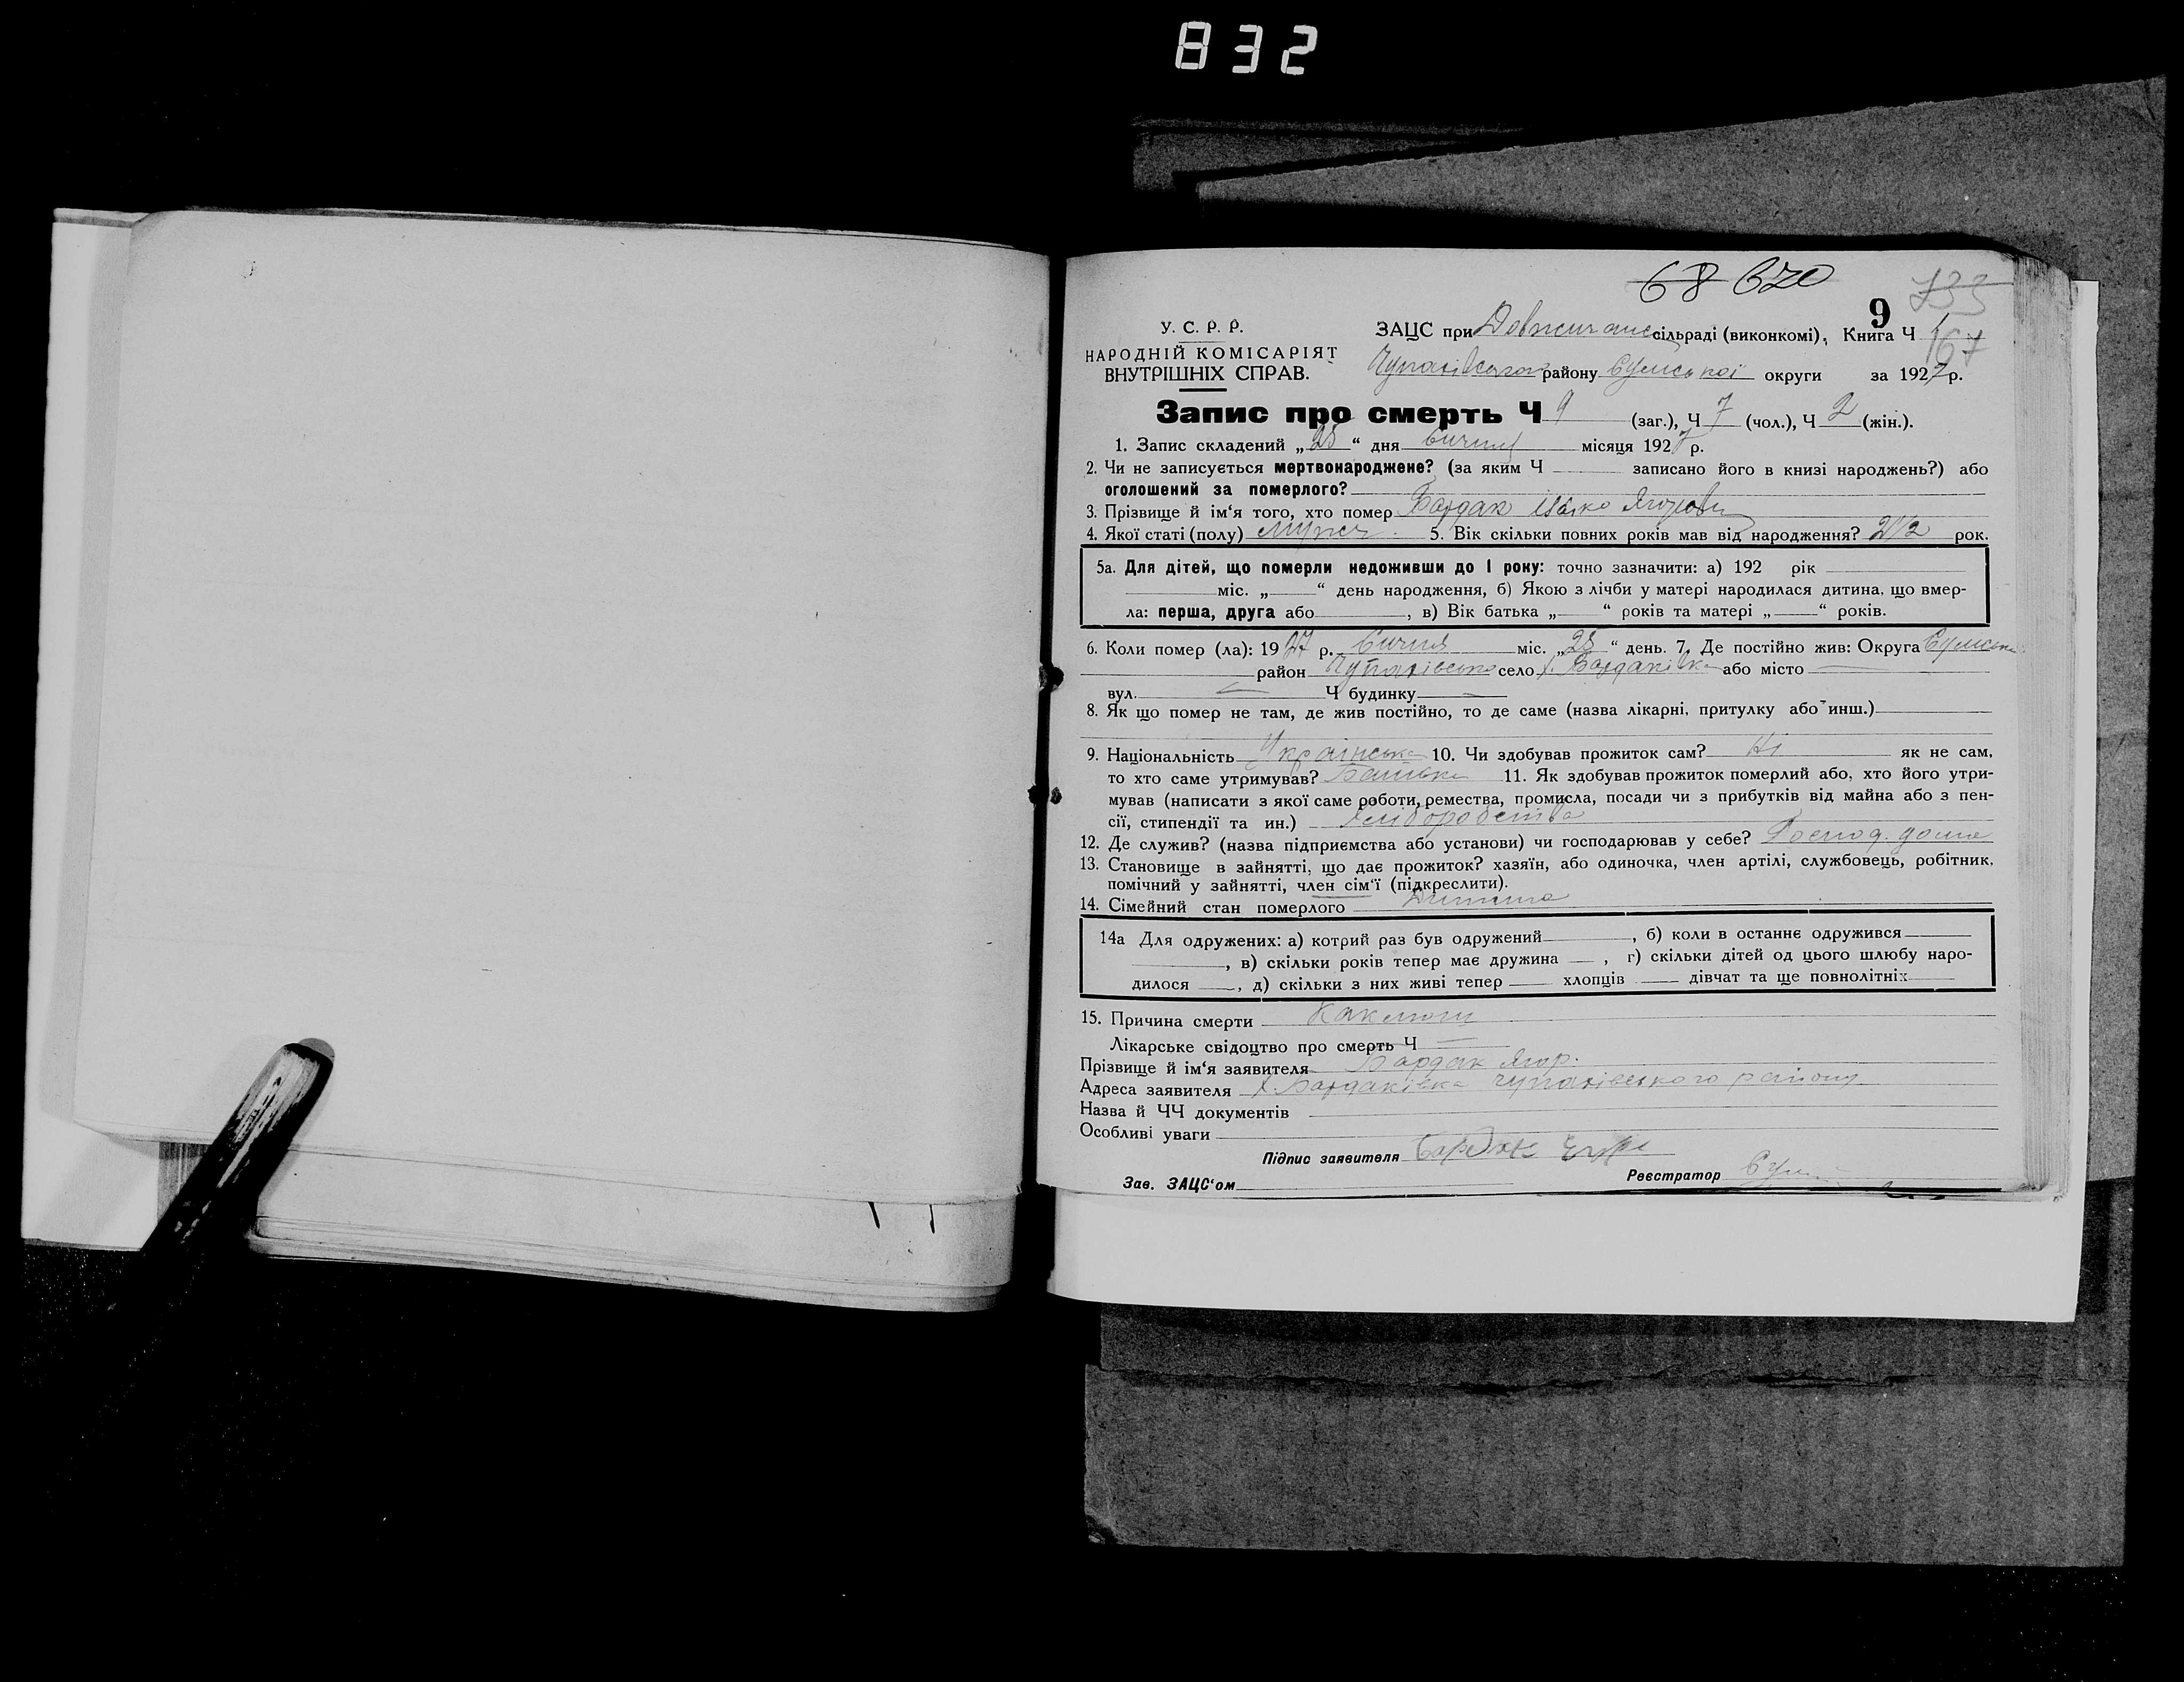 832
68 670
733
9
У. С. Р. Р.
НАРОДНІЙ КОМІСАРІЯТ
ВНУТРІШНІХ СПРАВ.
ЗАЦС при сільраді (виконкомі), Книга Ч
67
Чупахівського району Сумської округи за 1927 р.
Запис про смерть Ч 9 (заг.), Ч 7 (чол.), Ч 2 (жін.).
1. Запис складений „28“ дня Січня місяця 1927 р.
2. Чи не записується мертвонароджене? (за яким Ч записано його в книзі народжень?) або
оголошений за померлого?
3. Прізвище й ім‘я того, хто помер Бардак Ягоров
4. Якої статі (полу) мужч. 5. Вік скільки повних років мав від народження? 2 1/2 рок.
5а. Для дітей, що померли недоживши до 1 року: точно зазначити: а) 192 рік
міс. „ “ день народження, б) Якою з лічби у матері народилася дитина, що вмер-
ла: перша, друга або , в) Вік батька „ “ років та матері „ “ років.
6. Коли помер (ла): 1927 р. Січня міс. „28“ день. 7. Де постійно жив: Округа Сумська
район Чупахівськ село х. Бардаківка або місто
вул. Ч будинку
8. Як що помер не там, де жив постійно, то де саме (назва лікарні, притулку або инш.)
9. Національність Українська 10. Чи здобував прожиток сам? Ні як не сам,
то хто саме утримував? Батько 11. Як здобував прожиток померлий або, хто його утри-
мував (написати з якої саме роботи, ремества, промисла, посади чи з прибутків від майна або з пен-
сії, стипендії та ин.) Хліборобства
12. Де служив? (назва підприємства або установи) чи господарював у себе? Господ. дома
13. Становище в зайнятті, що дає прожиток? хазяїн, або одиночка, член артілі, службовець, робітник,
помічний у зайнятті, член сім‘ї (підкреслити).
14. Сімейний стан померлого Дитина
14а Для одружених: а) котрий раз був одружений , б) коли в останнє одружився
, в) скільки років тепер має дружина , г) скільки дітей од цього шлюбу наро-
дилося , д) скільки з них живі тепер хлопців дівчат та ще повнолітніх
15. Причина смерти Каклюш
Лікарське свідоцтво про смерть Ч
Прізвище й ім‘я заявителя Бардак Ягор.
Адреса заявителя х. Бардаківка Чупахівського району
Назва й ЧЧ документів
Особливі уваги
Підпис заявителя Бардак
Зав. ЗАЦС‘ом Реєстратор